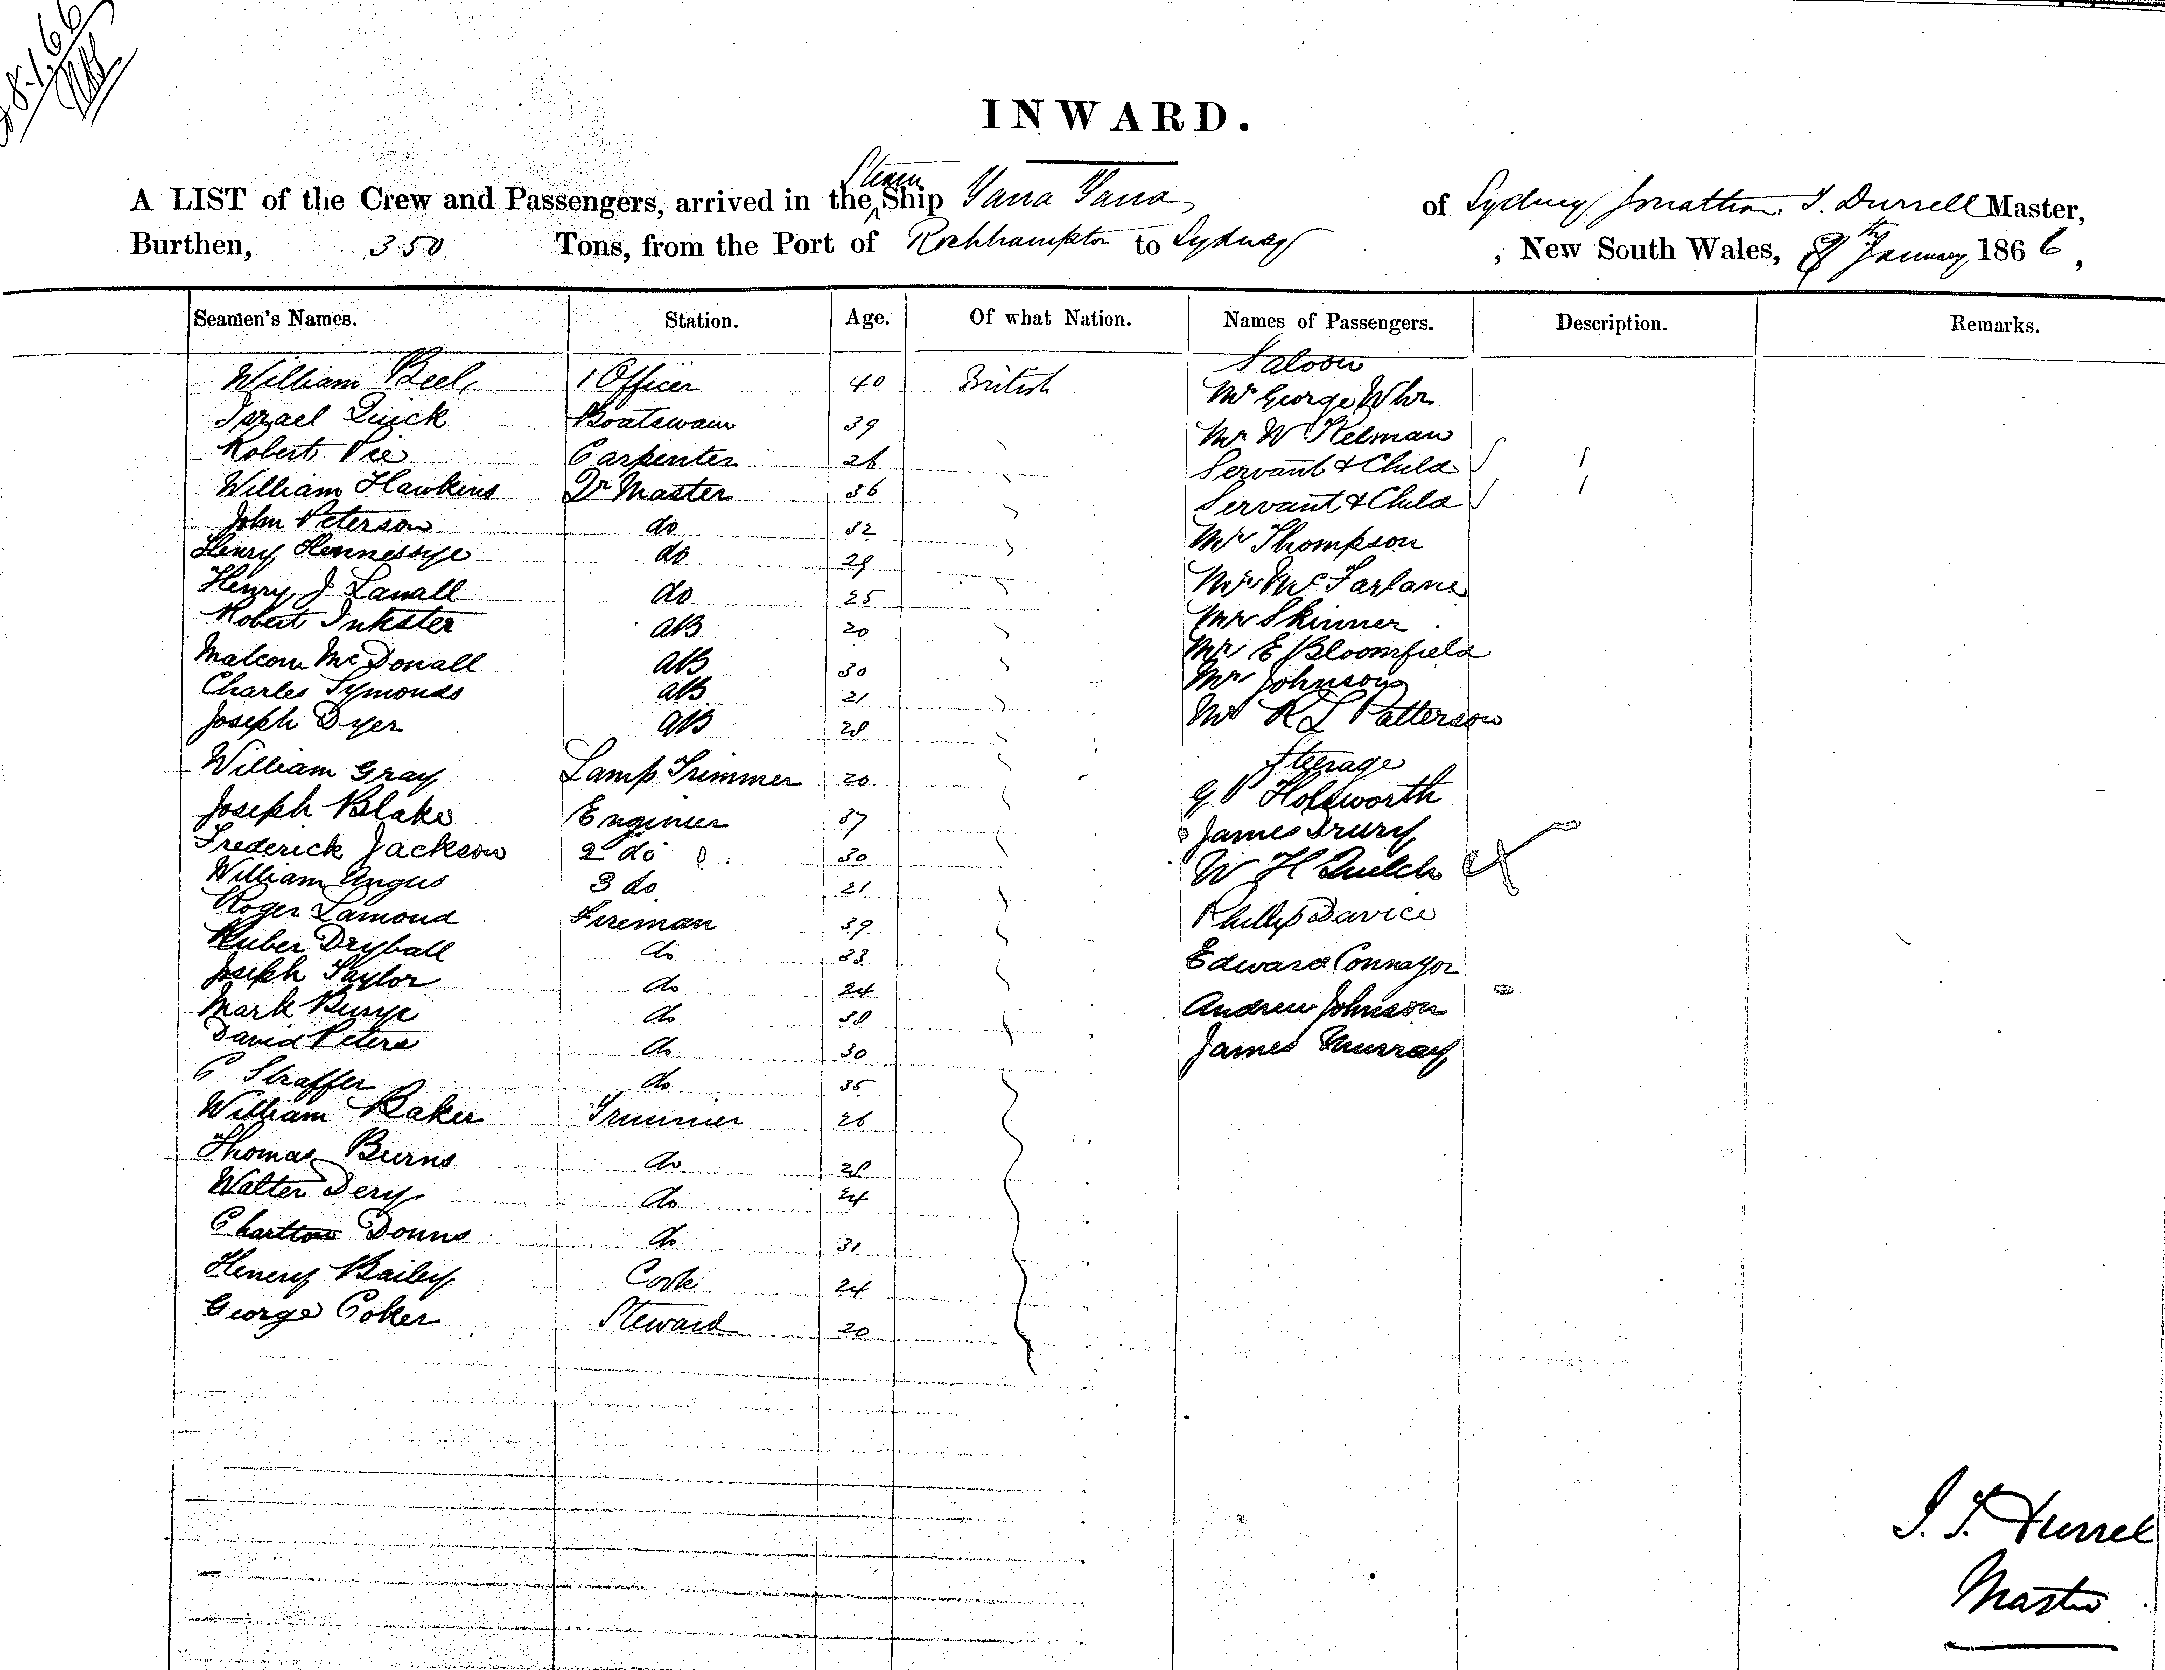 8.1.66
INWARD.
A LIST of the Crew and Passengers, arrived in the Steam Ship Yarra Yarra of Sydney Jonathan T. Durrell Master,
Burthen, 350 Tons, from the Port of Rockhampton to Sydney, New South Wales, 8th January 1866,
Seamen's Names. Station. Age. Of what Nation. Names of Passengers. Description. Remarks.
Saloon
William Beel 1 Officer 40 British Mr George Whr
Israel Quick Boatswain 39 Mr W Kelman
Robert Pie Carpenter 26 Servant & Child
William Hawkins Qr Master 36 Servant & Child
John Peterson do 32 Mr Thompson
Henry Hennessye do 29 Mr McFarlane
Henry J Lavall do 25 Mr Skinner
Robert Inkster AB 20 Mr E Bloomfield
Malcom McDonall AB 30 Mr Johnson
Charles Symonds AB 21 Mr R L Patterson
Joseph Dyer AB 28
William Gray Lamp Trimmer 20 Steerage
Joseph Blake Engineer 37 G P Holsworth
Frederick Jackson 2 do 30 James Drury
William Angus 3 do 21 W H Quelch
Roger Lamond Fireman 39 Phillip Davice
Ruber Dryball do 23 Edward Connayor
Joseph Taylor do 24
Mark Bunye do 38 Andrew Johnson
David Peters do 30 James Murray
C Straffer do 35
William Baker Trimmer 26
Thomas Burns do 28
Walter Dery do 24
Charlton Donns do 31
Henery Bailey Cook 24
George Coker Steward 20
J. T. Durrell
Master